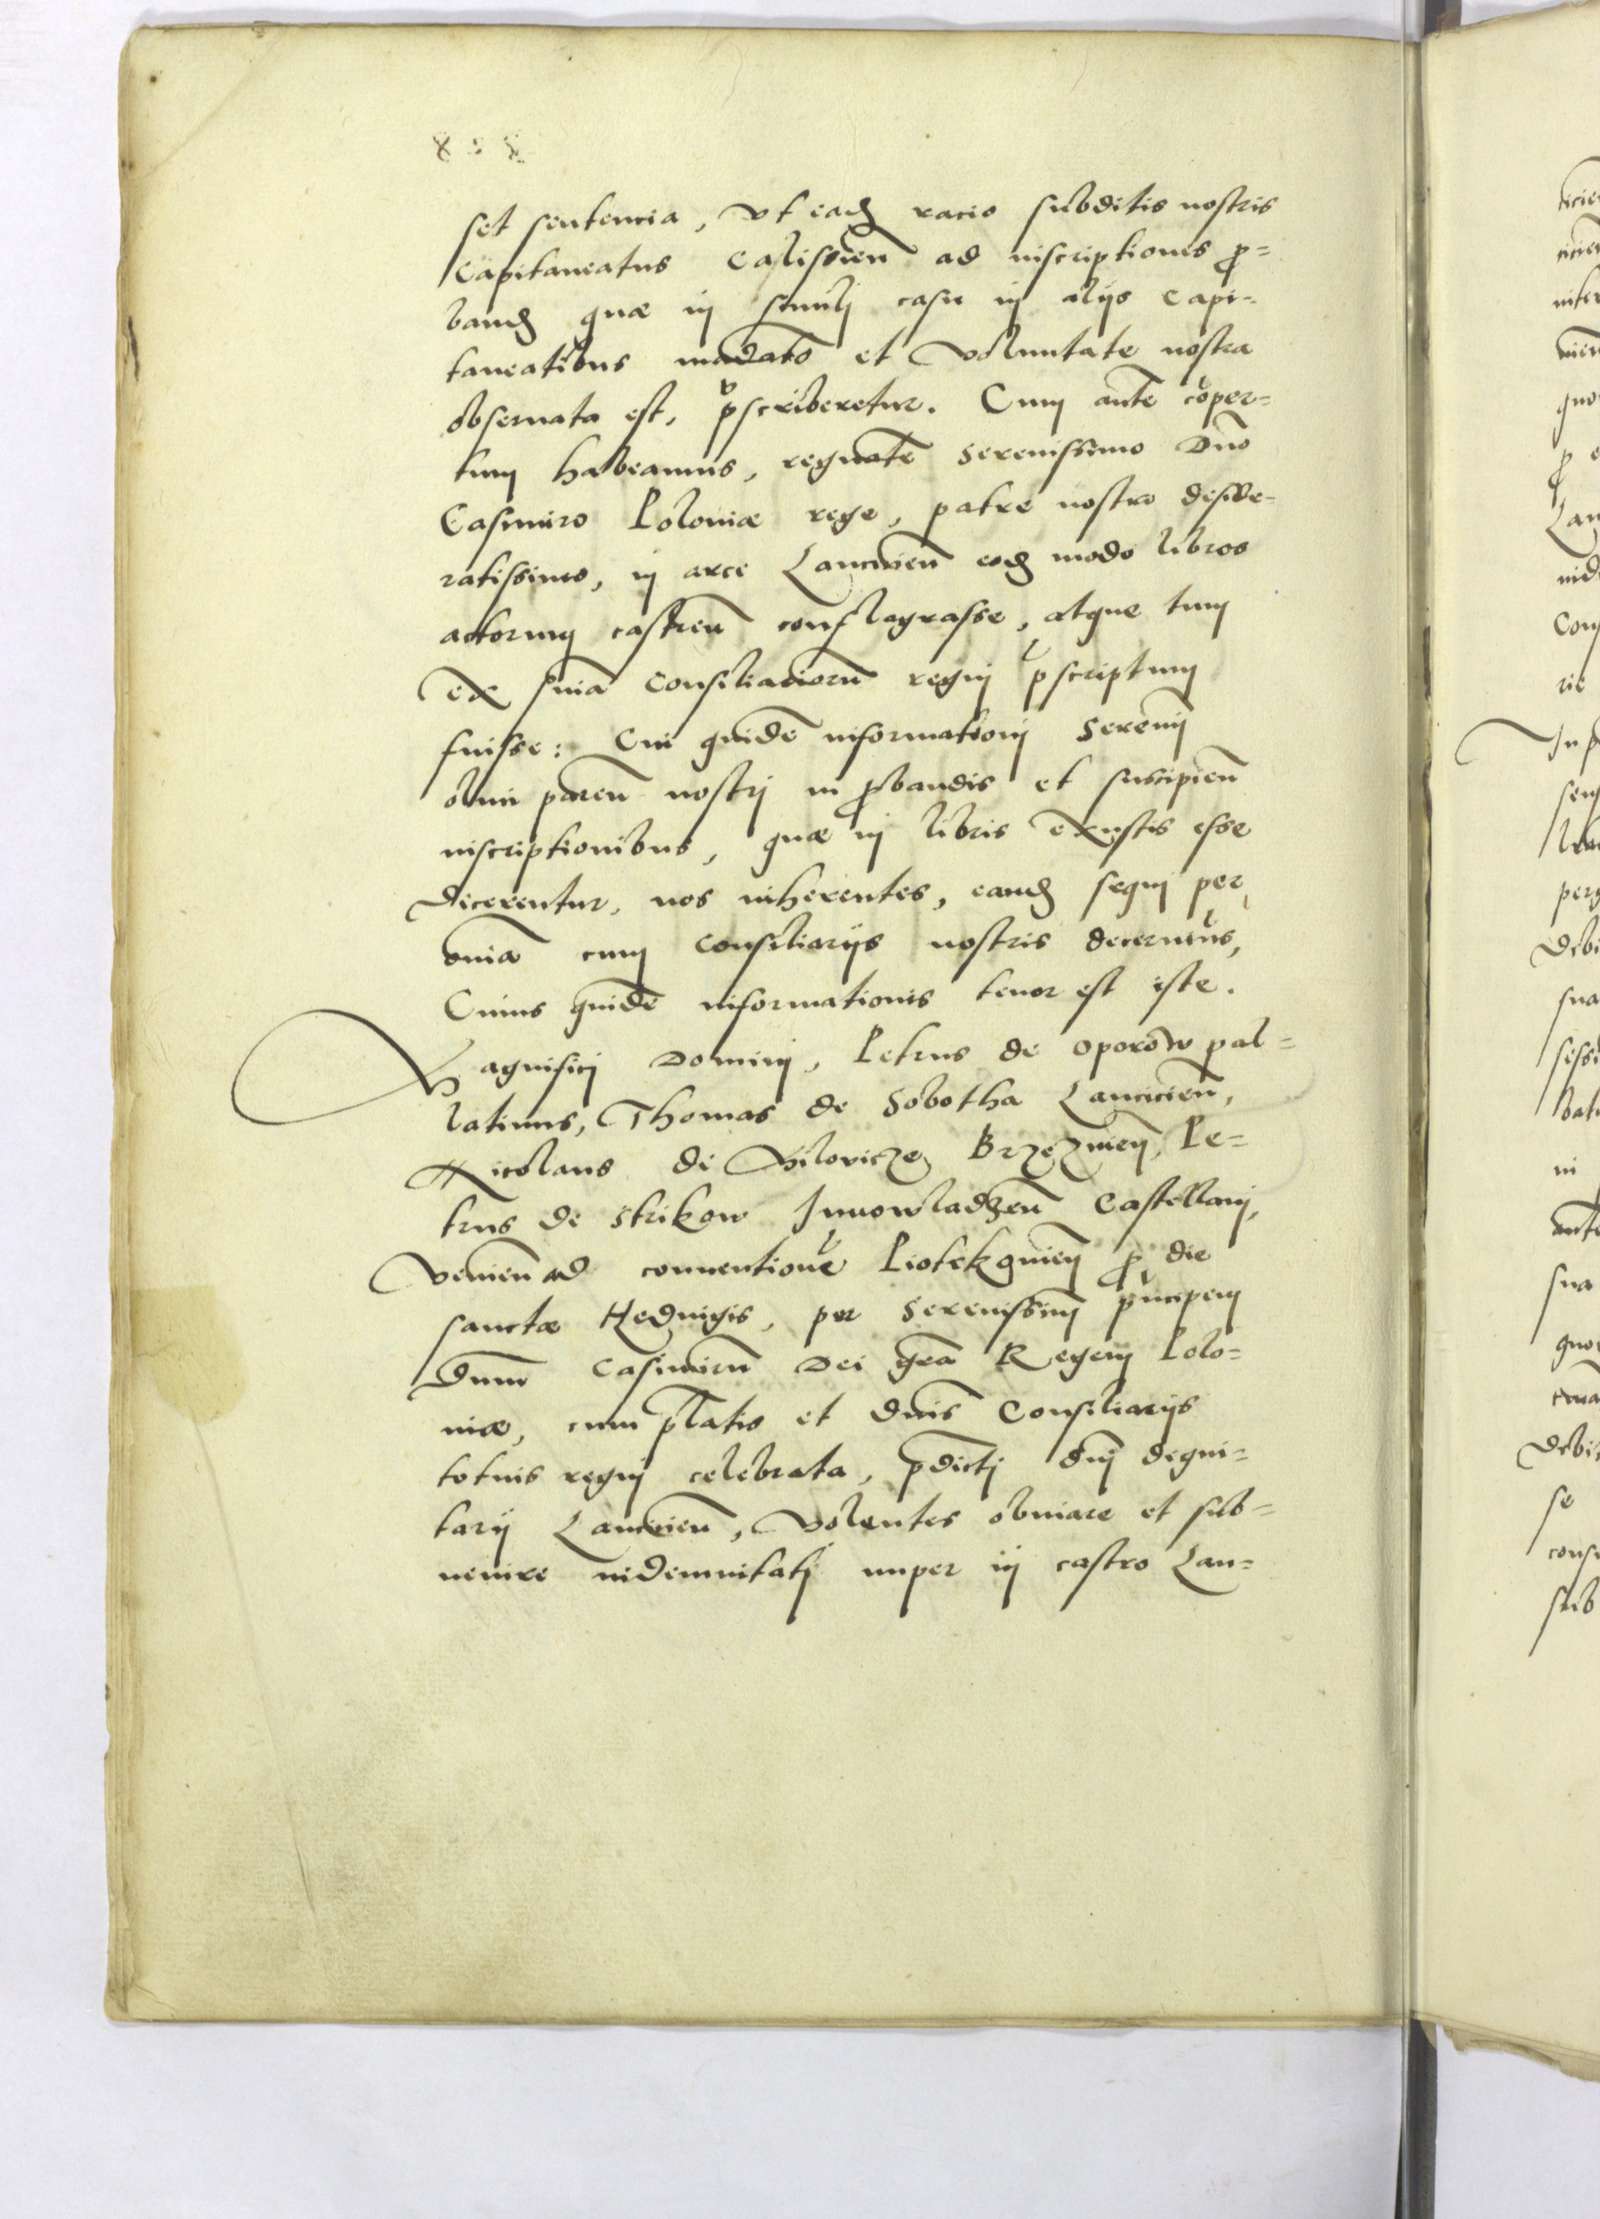 set sentencia, vt ead(em) racio subditis nostris
Capitaneatus Calissien̄ ad inscriptiones p̲ro=
band(as) quæ in simili casu in alijs Capi=
taneatibus ma(n)dato et voluntate nostra
obseruata est, p̄scriberetur. Cum aūte(m) cōper=
tum habeamus, regnāte Serenissimo Dn̄o
Casimiro Poloniæ rege, patre nostro deside=
ratissimo, in arce Lancicien̄ eod(em) modo libros
actorum castren̄ conflagrasse, atque tum
ex sn̄ia Consiliariorū regni p̄scriptum
fuisse: Cui quidē informationi Serēmi
olim paren̄ nostri in probandis et suscipien̄
inscriptionibus, quæ in libris exustis esse
dicerentur, nos inherentes, eand(em) sequi per
om̄ia cum Consiliarijs nostris decernim(us),
Cuius quidē informationis tenor est iste.
Magnifici Domini, Petrus de Oporow pal=
latinus, Thomas de Sobotha Lancicien̄,
Nicolaus de Brzezinen̄, Pe=
trus de Strikow Inuowladzen̄ Castellani,
venien̄ ad conuentionē Piotrkouien̄ pro die
sanctæ Hedwigis, per Serenissim(um) p̄ncipem
Dn̄m Casimirū Dei gr̄a Regem Polo=
niæ, cum p̄latis et dn̄is Consiliarijs
totius regni celebrata, p̄dicti dn̄i digni=
tarij Lancicien̄, volentes obuiare et sub=
uenire indemnitati nuper in castro Lan=